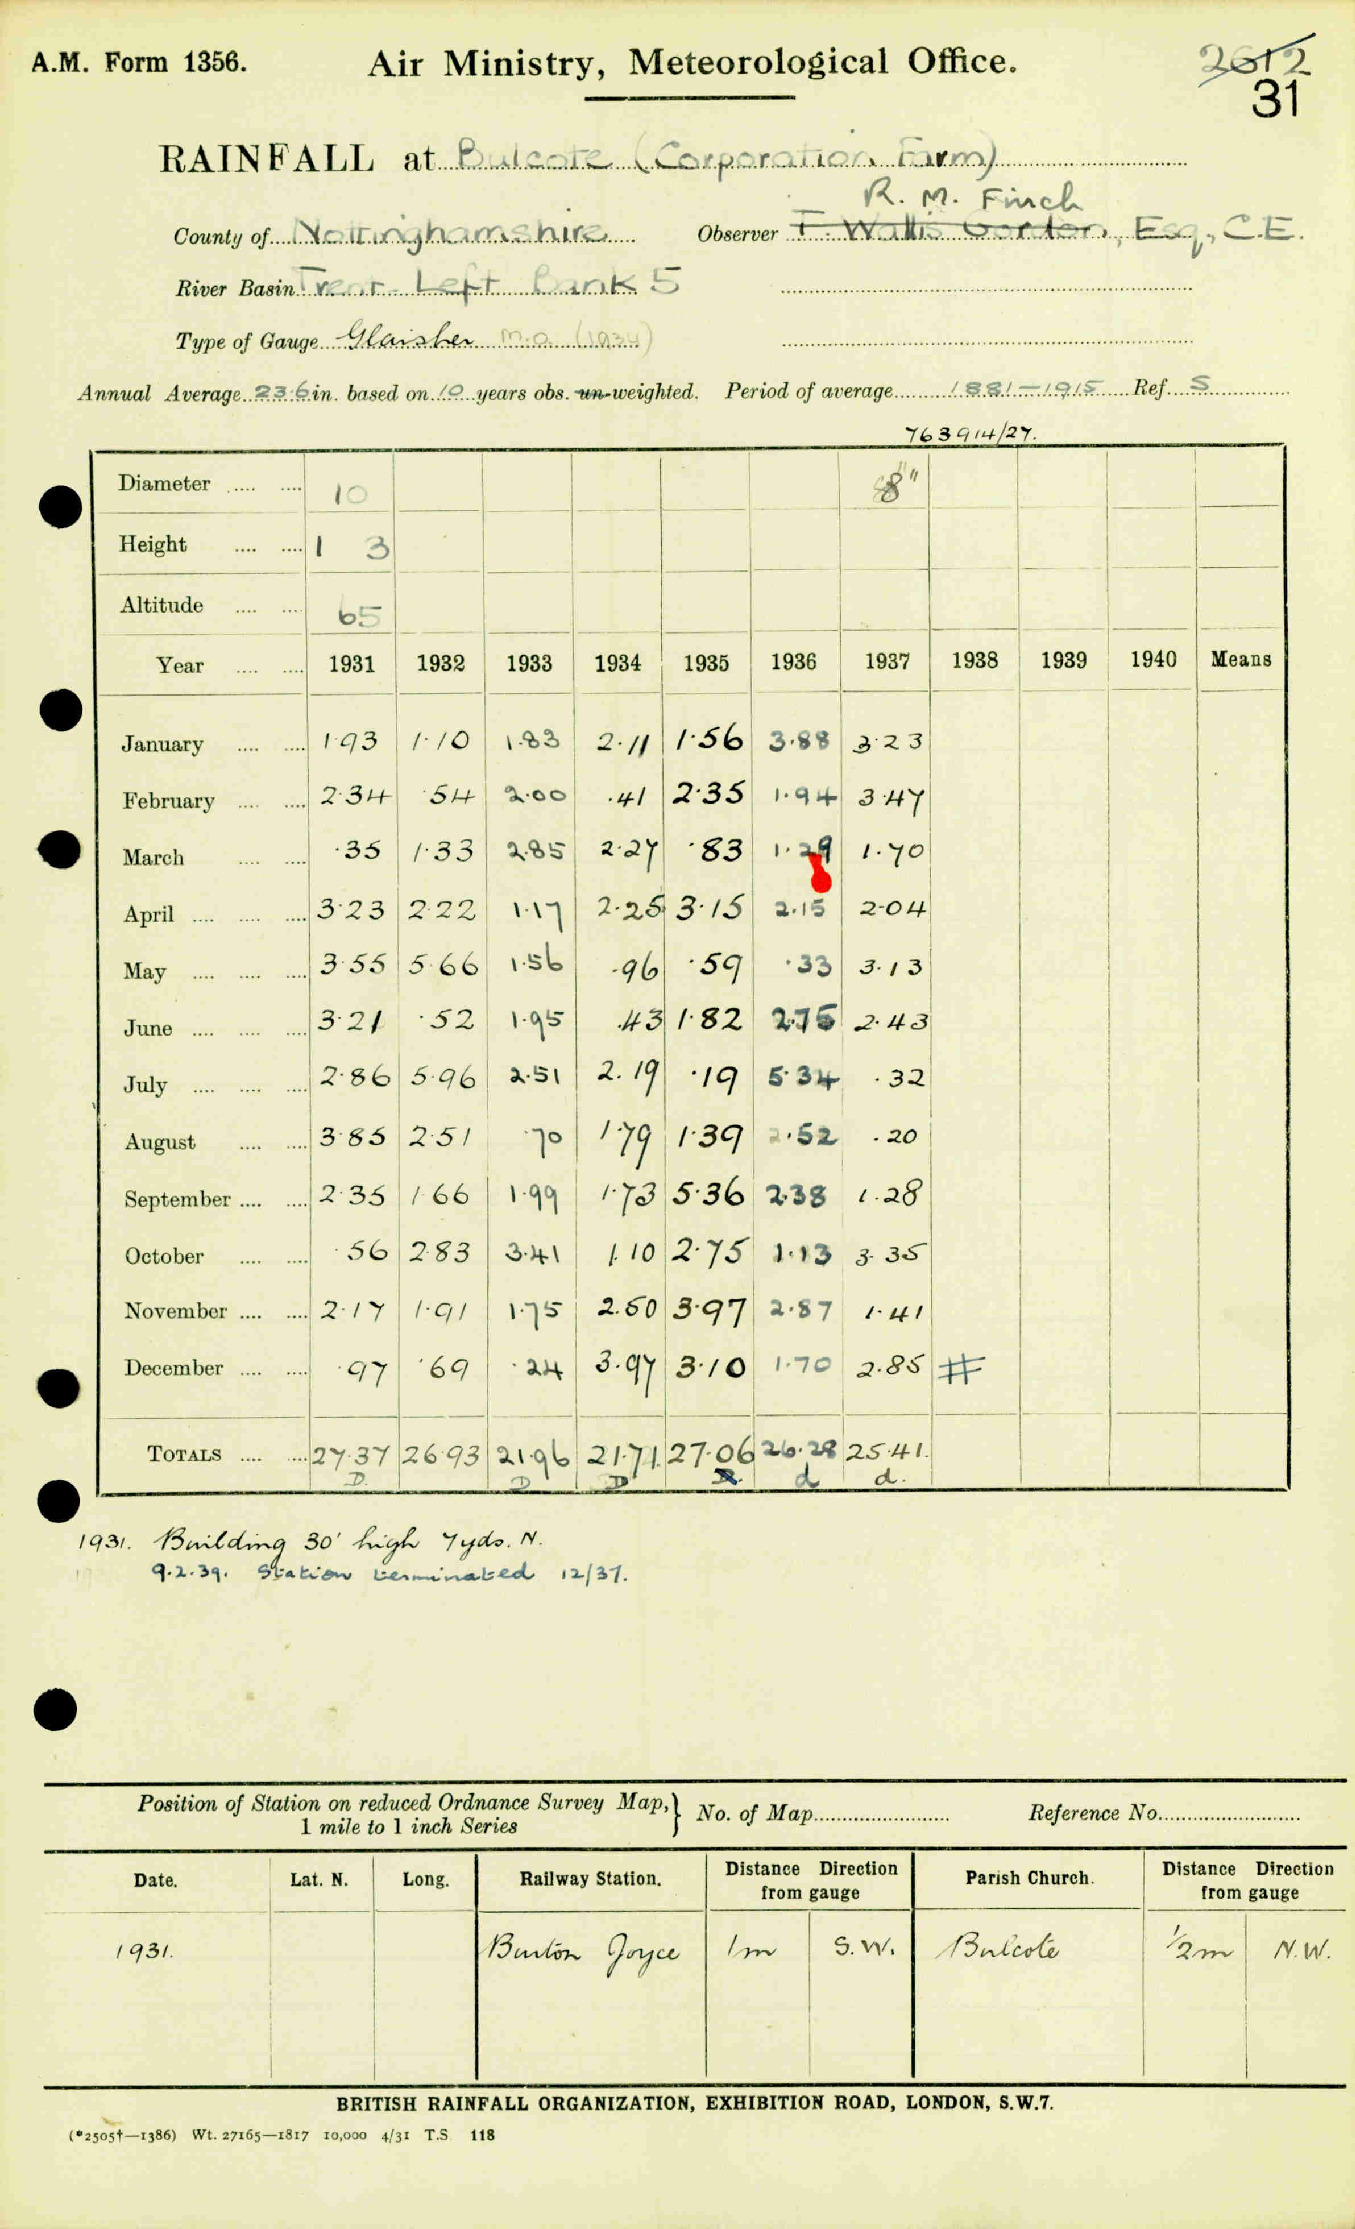 A.M. Form 1356. Air Ministry, Meteorological Office. 2612
31
RAINFALL at Bulcote (Corporation Farm)
R. M. Finch
County of Nottinghamshire Observer F. Wallis Gordon, Esq., C.E.
River Basin Trent Left Bank 5
Type of Gauge Glaisher M.O. (1934)
Annual Average 23.6 in. based on 10 years obs. un-weighted. Period of average 1881–1915 Ref. S
763914/27.
Diameter 10 8"
Height 1 3
Altitude 65
Year 1931 1932 1933 1934 1935 1936 1937 1938 1939 1940 Means
January 1.93 1.10 1.83 2.11 1.56 3.88 3.23
February 2.34 .54 2.00 .41 2.35 1.94 3.47
March .35 1.33 2.85 2.27 .83 1.29 1.70
April 3.23 2.22 1.17 2.25 3.15 2.15 2.04
May 3.55 5.66 1.56 .96 .59 .33 3.13
June 3.21 .52 1.95 .43 1.82 2.75 2.43
July 2.86 5.96 2.51 2.19 .19 5.34 .32
August 3.85 2.51 .70 1.79 1.39 .52 .20
September 2.35 1.66 1.99 1.73 5.36 2.38 1.28
October .56 2.83 3.41 1.10 2.75 1.13 3.35
November 2.17 1.91 1.75 2.50 3.97 2.87 1.41
December .97 .69 .24 3.97 3.10 1.70 2.85 #
TOTALS 27.37 26.93 21.96 21.71 27.06 26.28 25.41
D. D D D. d d.
1931. Building 30' high 7yds. N.
9.2.39. Station terminated 12/37.
Position of Station on reduced Ordnance Survey Map, 1 mile to 1 inch Series } No. of Map Reference No.
Date. Lat. N. Long. Railway Station. Distance Direction from gauge Parish Church. Distance Direction from gauge
1931. Burton Joyce 1m S.W. Bulcote ½m N.W.
BRITISH RAINFALL ORGANIZATION, EXHIBITION ROAD, LONDON, S.W.7.
(*2505†—1386) Wt. 27165—1817 10,000 4/31 T.S. 118